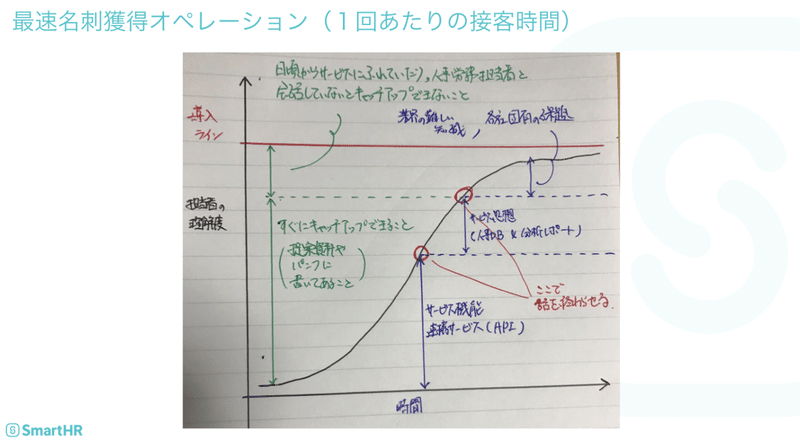 最速名刺獲得オペレーション（１回あたりの接客時間）
日頃からサービスにふれていたり、人事労務担当者と
会話していないとキャッチアップできないこと
導入
ライン
業界の難しい
知識
各社固有の課題
担当者の
理解度
すぐにキャッチアップできること
(提案資料や
パンフに
書いてあること)
サービス思想
(人事DB & 分析レポート)
ここで
話を終わらせる。
サービス機能
連携サービス(API)
時間
SmartHR